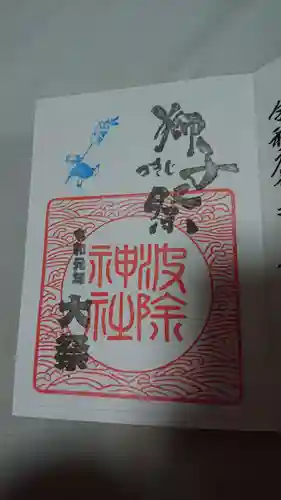 つきじ
獅子祭
波除
神社
令和元年
大祭